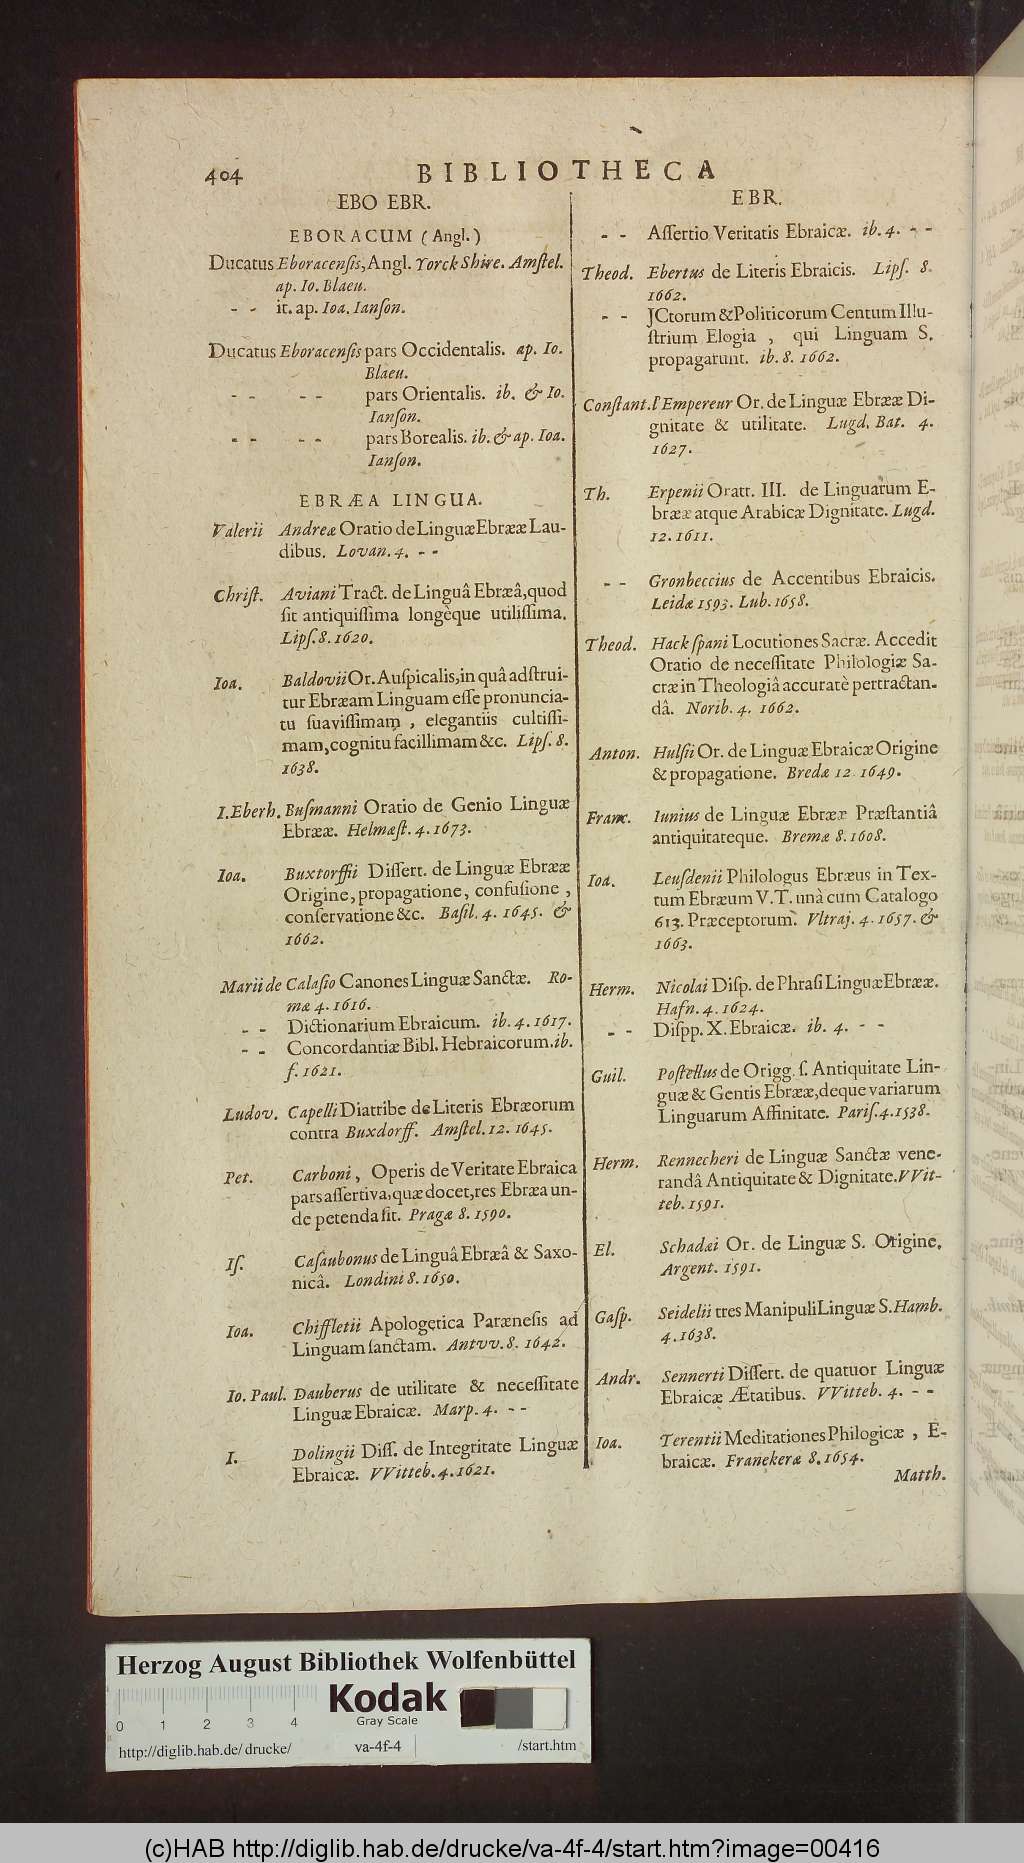 404
BIBLIOTHECA
EBO EBR.
EBORACUM (Angl.)
Ducatus Eboracensis, Angl. Yorck Shire. Amstel.
ap. Io. Blaeu.
- - it. ap. Ioa. Ianson.
Ducatus Eboracensis pars Occidentalis. ap. Io.
Blaeu.
- - - - pars Orientalis. ib. & Io.
Ianson.
- - - - pars Borealis. ib. & ap. Ioa.
Ianson.
EBRÆA LINGUA.
Valerii Andreæ Oratio de Linguæ Ebrææ Lau-
dibus. Lovan. 4. - -
Christ. Aviani Tract. de Linguâ Ebræâ, quod
sit antiquissima longèque utilissima.
Lips. 8. 1620.
Ioa. Baldovii Or. Auspicalis, in quâ adstrui-
tur Ebræam Linguam esse pronuncia-
tu suavissimam, elegantiis cultissi-
mam, cognitu facillimam &c. Lips. 8.
1638.
I. Eberh. Busmanni Oratio de Genio Linguæ
Ebrææ. Helmæst. 4. 1673.
Ioa. Buxtorffii Dissert. de Linguæ Ebrææ
Origine, propagatione, confusione,
conservatione &c. Basil. 4. 1645. &
1662.
Marii de Calasio Canones Linguæ Sanctæ. Ro-
mæ 4. 1616.
- - Dictionarium Ebraicum. ib. 4. 1617.
- - Concordantiæ Bibl. Hebraicorum. ib.
f. 1621.
Ludov. Capelli Diatribe de Literis Ebræorum
contra Buxdorff. Amstel. 12. 1645.
Pet. Carboni, Operis de Veritate Ebraica
pars assertiva, quæ docet, res Ebræa un-
de petenda sit. Pragæ 8. 1590.
Is. Casaubonus de Linguâ Ebræâ & Saxo-
nicâ. Londini 8. 1650.
Ioa. Chiffletii Apologetica Parænesis ad
Linguam sanctam. Antvv. 8. 1642.
Io. Paul. Dauberus de utilitate & necessitate
Linguæ Ebraicæ. Marp. 4. - -
I. Dolingii Diss. de Integritate Linguæ
Ebraicæ. VVitteb. 4. 1621.
EBR.
- - Assertio Veritatis Ebraicæ. ib. 4. - -
Theod. Ebertus de Literis Ebraicis. Lips. 8.
1662.
- - JCtorum & Politicorum Centum Illu-
strium Elogia, qui Linguam S.
propagarunt. ib. 8. 1662.
Constant. l'Empereur Or. de Linguæ Ebrææ Di-
gnitate & utilitate. Lugd. Bat. 4.
1627.
Th. Erpenii Oratt. III. de Linguarum E-
brææ atque Arabicæ Dignitate. Lugd.
12. 1611.
- - Gronbeccius de Accentibus Ebraicis.
Leidæ 1593. Lub. 1658.
Theod. Hackspani Locutiones Sacræ. Accedit
Oratio de necessitate Philologiæ Sa-
cræ in Theologiâ accuratè pertractan-
dâ. Norib. 4. 1662.
Anton. Hulsii Or. de Linguæ Ebraicæ Origine
& propagatione. Bredæ 12 1649.
Franc. Iunius de Linguæ Ebrææ Præstantiâ
antiquitateque. Bremæ 8. 1608.
Ioa. Leusdenii Philologus Ebræus in Tex-
tum Ebræum V. T. unà cum Catalogo
613. Præceptorum. Vltraj. 4. 1657. &
1663.
Herm. Nicolai Disp. de Phrasi Linguæ Ebrææ.
Hafn. 4. 1624.
- - Dispp. X. Ebraicæ. ib. 4. - -
Guil. Postellus de Origg. s. Antiquitate Lin-
guæ & Gentis Ebrææ, deque variarum
Linguarum Affinitate. Paris. 4. 1538.
Herm. Rennecheri de Linguæ Sanctæ vene-
randâ Antiquitate & Dignitate. VVit-
teb. 1591.
El. Schadæi Or. de Linguæ S. Origine.
Argent. 1591.
Gasp. Seidelii tres Manipuli Linguæ S. Hamb.
4. 1638.
Andr. Sennerti Dissert. de quatuor Linguæ
Ebraicæ Ætatibus. VVitteb. 4. - -
Ioa. Terentii Meditationes Philogicæ, E-
braicæ. Franekeræ 8. 1654.
Matth.
Herzog August Bibliothek Wolfenbüttel
Kodak
Gray Scale
0 1 2 3 4
http://diglib.hab.de/drucke/ va-4f-4 /start.htm
(c)HAB http://diglib.hab.de/drucke/va-4f-4/start.htm?image=00416